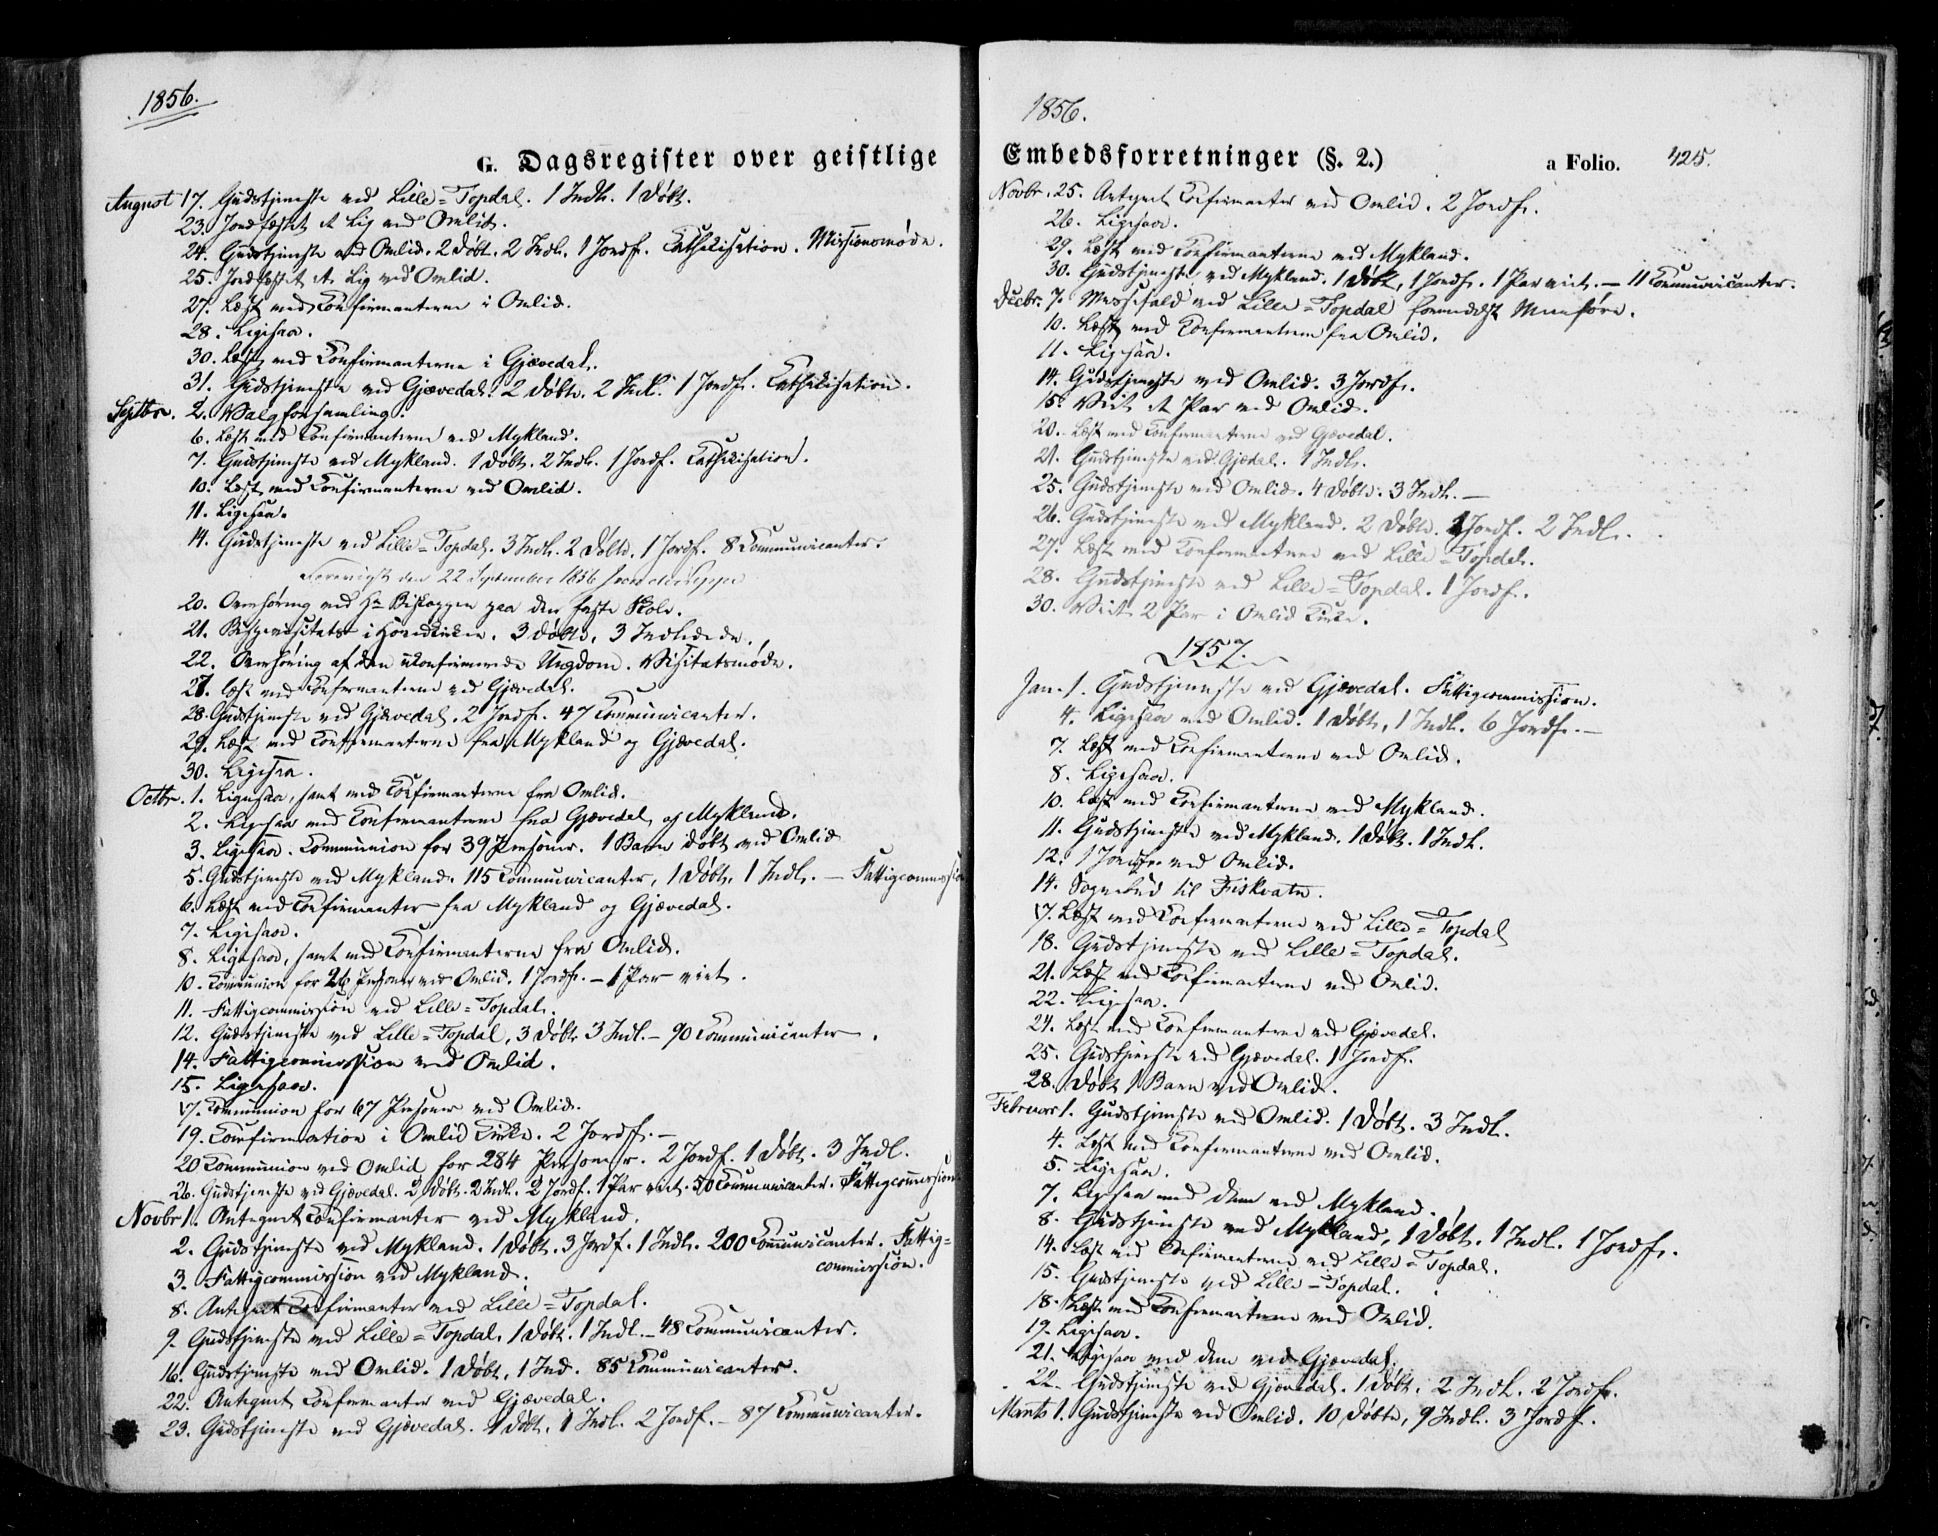 1856.
G. Dagsregister over geistlige
August 17. Gudstjeneste ved Lille-Topdal. 1 Indl. 1 Døbt.
23. Jordfæstet et Lig ved Omlid.
24. Gudstjeneste ved Omlid. 2 Døbt. 2 Indl. 1 Jordf. Cathekisation. Missionsmøde.
25. Jordfæstet et Lig ved Omlid.
27. Læst med Confirmanterne i Omlid.
28. Ligesaa.
30. Læst med Confirmanterne i Gjævedal.
31. Gudstjeneste ved Gjævedal. 2 Døbte. 2 Indl. 1 Jordf. Cathekisation.
Septbr. 2. Valgforsamling.
6. Læst med Confirmanterne ved Mykland.
7. Gudstjeneste ved Mykland. 1 Døbt. 2 Indl. 1 Jordf. Cathekisation.
10. Læst med Confirmanterne ved Omlid.
11. Ligesaa.
14. Gudstjeneste ved Lille-Topdal. 3 Indl. 2 Døbte. 1 Jordf. 8 Communicanter.
Foreviist den 22 September 1856
20. Overhøring ved Hr Biskoppen paa den faste Skole.
21. Bispevisitats i Hovedkirken. 3 Døbte. 3 Indledede.
22. Overhøring af den ukonfirmerede Ungdom. Visitatsmøde.
27. Læst med Confirmanterne ved Gjævedal.
28. Gudstjeneste ved Gjævedal. 2 Jordf. 47 Communicanter.
29. Læst med Confirmanterne fra Mykland og Gjævedal.
30. Ligesaa.
Octbr. 1. Ligesaa, samt med Confirmanterne fra Omlid.
2. Ligesaa med Confirmanterne fra Gjævedal og Mykland.
3. Ligesaa. Communion for 39 Personer. 1 Barn døbt ved Omlid
5. Gudstjeneste ved Mykland. 115 Communicanter, 1 Døbt. 1 Indl. — Fattigcommission
6. Læst med Confirmanter fra Mykland og Gjævedal.
7. Ligesaa.
8. Ligesaa, samt med Confirmanterne fra Omlid.
10. Communion for 26 Personer ved Omlid. 1 Jordf. — 1 Par viet.
11. Fattigcommission ved Lille-Topdal.
12. Gudstjeneste ved Lille-Topdal, 3 Døbt. 3 Indl. — 90 Communicanter.
14. Fattigcommission ved Omlid.
15. Ligesaa.
17. Communion for 67 Personer ved Omlid.
19. Confirmation i Omlid Kirke. 2 Jordf. —
20 Communion ved Omlid for 284 Personer. 2 Jordf. 1 Døbt. 3 Indl.
26. Gudstjeneste ved Gjævedal. 2 Døbt. 2 Indl. 2 Jordf. 1 Par viet. 50 Communicanter. Fattigcommission
Novbr 1. Antegnet Confirmanter ved Mykland.
2. Gudstjeneste ved Mykland. 1 Døbt. 3 Jordf. 1 Indl. 200 Communicanter. Fattig-
commission.
3. Fattigcommission ved Mykland.
8. Antegnet Confirmanter ved Lille-Topdal.
9. Gudstjeneste ved Lille-Topdal, 1 Døbt. 1 Indl. — 48 Communicanter.
16. Gudstjeneste ved Omlid. 1 Døbt, 1 Ind. 85 Communicanter.
22. Antegnet Confirmanter ved Gjævedal.
23. Gudstjeneste ved Gjævedal. 1 Døbt. 1 Indl. 2 Jordf. — 87 Communicanter.
1856.
Embedsforretninger (§. 2.) a Folio. 425.
Novbr. 25. Antegnet Confirmanter ved Omlid. 2 Jordf.
26. Ligesaa.
29. Læst med Confirmanterne ved Mykland.
30. Gudstjeneste ved Mykland. 1 Døbt, 1 Jordf. 1 Par viet. — 11 Communicanter.
Decbr. 7. Messefald ved Lille-Topdal formedelst Uveføre.
10. Læst med Confirmanterne fra Omlid.
11. Ligesaa.
14. Gudstjeneste ved Omlid. 3 Jordf.
15. Viet et Par ved Omlid.
20. Læst med Confirmanterne ved Gjævedal.
21. Gudstjeneste ved Gjædal. 1 Indl.
25. Gudstjeneste ved Omlid. 4 Døbte. 3 Indl. —
26. Gudstjeneste ved Mykland. 2 Døbte. 1 Jordf. 2 Indl.
27. Læst med Confirmanterne ved Lille-Topdal.
28. Gudstjeneste ved Lille-Topdal. 1 Jordf.
30. Viet 2 Par i Omlid Kirke.
1857.
Jan. 1. Gudstjeneste ved Gjævedal. Fattigcommission.
4. Ligesaa ved Omlid. 1 Døbt, 1 Indl. 6 Jordf. —
7. Læst med Confirmanterne ved Omlid.
8. Ligesaa.
10. Læst med Confirmanterne ved Mykland.
11. Gudstjeneste ved Mykland. 1 Døbt. 1 Indl.
12. 1 Jordf. ved Omlid.
14. Sognebud til Fiskvatn.
17. Læst med Confirmanterne ved Lille-Topdal
18. Gudstjeneste ved Lille-Topdal.
21. Læst med Confirmanterne ved Omlid.
22. Ligesaa.
24. Læst med Confirmanterne ved Gjævedal.
25. Gudstjeneste ved Gjævedal. 1 Jordf.
28. Døbt 1 Barn ved Omlid.
Februar 1. Gudstjeneste ved Omlid. 1 Døbt. 3 Indl.
4. Læst med Confirmanterne ved Omlid.
5. Ligesaa.
7. Ligesaa med dem ved Mykland.
8. Gudstjeneste ved Mykland, 1 Døbt. 1 Indl. 1 Jordf.
14. Læst med Confirmanterne ved Lille-Topdal.
15. Gudstjeneste ved Lille-Topdal.
18. Læst med Confirmanterne ved Omlid.
19. Ligesaa.
21. Ligesaa med dem ved Gjævedal.
22. Gudstjeneste ved Gjævedal. 1 Døbt. 2 Indl. 2 Jordf.
Marts 1. Gudstjeneste ved Omlid. 10 Døbte, 9 Indl. 3 Jordf.